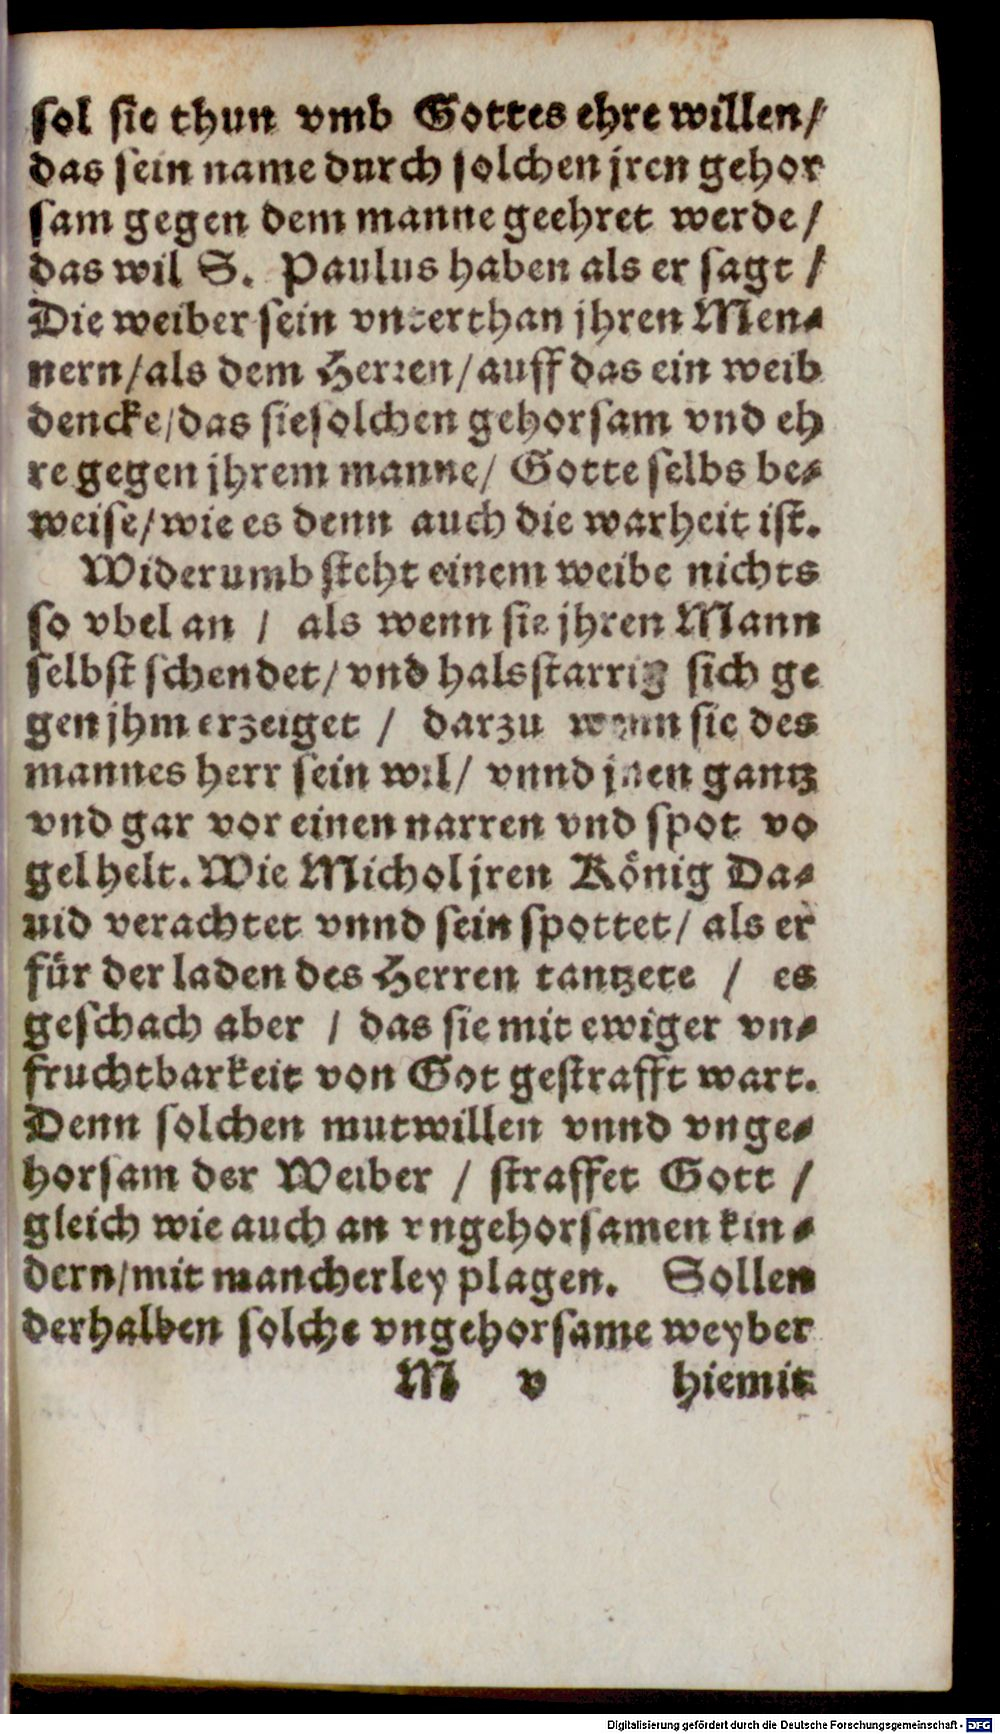 sol sie thun vmb Gottes ehre willen/
das sein name durch solchen jren gehor
sam gegen dem manne geehret werde/
das wil S. Paulus haben als er sagt /
Die weiber sein vnterthan jhren Men-
nern/als dem Herren/auff das ein weib
dencke/das sie solchen gehorsam vnd eh
re gegen jhrem manne/ Gotte selbs be-
weise/wie es denn auch die warheit ist.
Widerumb steht einem weibe nichts
so vbel an / als wenn sie jhren Mann
selbst schendet/ vnd halsstarrig sich ge
gen jhm erzeiget / darzu wenn sie des
mannes herr sein wil/ vnnd jnen gantz
vnd gar vor einen narren vnd spot vo
gel helt. Wie Michol jren König Da-
uid verachtet vnnd sein spottet/ als er
für der laden des Herren tantzete / es
geschach aber / das sie mit ewiger vn-
fruchtbarkeit von Got gestrafft wart.
Denn solchen mutwillen vnnd vnge-
horsam der Weiber / straffet Gott /
gleich wie auch an vngehorsamen kin-
dern/mit mancherley plagen. Sollen
derhalben solche vngehorsame weyber
M v hiemit
Digitalisierung gefördert durch die Deutsche Forschungsgemeinschaft - DFG